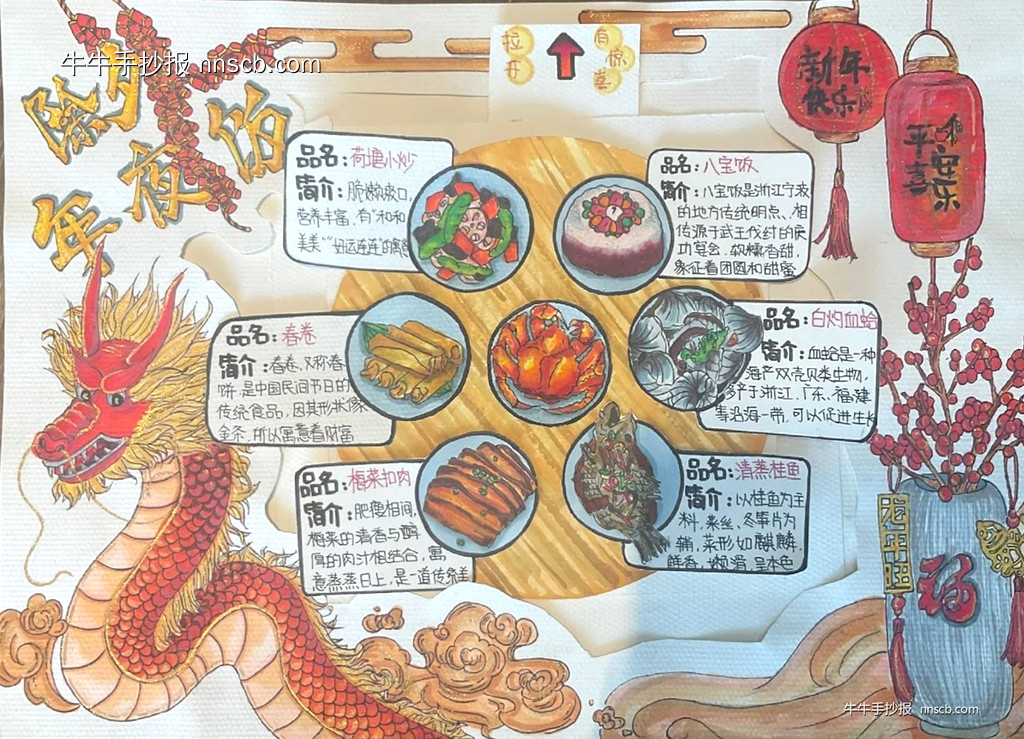 牛牛手抄报 nnscb.com
除夕
年夜饭
拉开
有惊喜
新年
快乐
平安
喜乐
品名:荷塘小炒
简介:脆嫩爽口,
营养丰富,有"和和
美美"
品名:八宝饭
简介:八宝饭是浙江宁波
的地方传统明点、相
传源于武王伐纣的庆
功宴会,软糯香甜,
象征着团圆和甜蜜
品名:春卷
简介:春卷、又称春
饼,是中国民间节日的
传统食品,因其形状像
金条,所以寓意着财富
品名:白灼血蛤
简介:血蛤是一种
海产双壳贝类生物,
多产于浙江、广东、福建
等沿海一带,可以促进生长
品名:梅菜扣肉
简介:肥瘦相间,
梅菜的清香与醇
厚的肉汁相结合,寓
意蒸蒸日上,是一道传统美
品名:清蒸桂鱼
简介:以桂鱼为主
料,菜丝、冬笋片为
辅,菜形如麒麟,
鲜香、嫩滑,呈本色
龙年旺
福
牛牛手抄报 nnscb.com